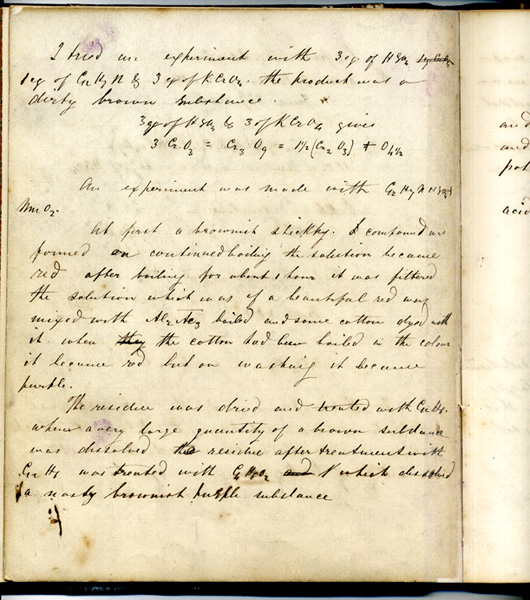 I tried an experiment with 3 eq of H SO4
1 eq of C12 H7 N & 3 eq of K CrO4. the product was a
dirty brown substance.
3 eq of H SO4 & 3 of K CrO4 gives
3 Cr O3 = Cr3 O9 = 1 1/2 (Cr2 O3) + O4 1/2
An experiment was made with
Mn O2.
At first a brownish stickky. I compound was
formed on continued boiling the solution became
red after boiling for about 1 hour it was filtered
the solution which was of a beautiful red was
mixed with boiled and some cotton dyed with
it. when they the cotton had been boiled in the colour
it became red but on washing it became
purple.
The residue was dried and treated with
when a very large quantity of a brown substance
was dissolved the residue after treatment with
was treated with and which dissolved
a nasty brownish purple substance
and
and
pot
acid